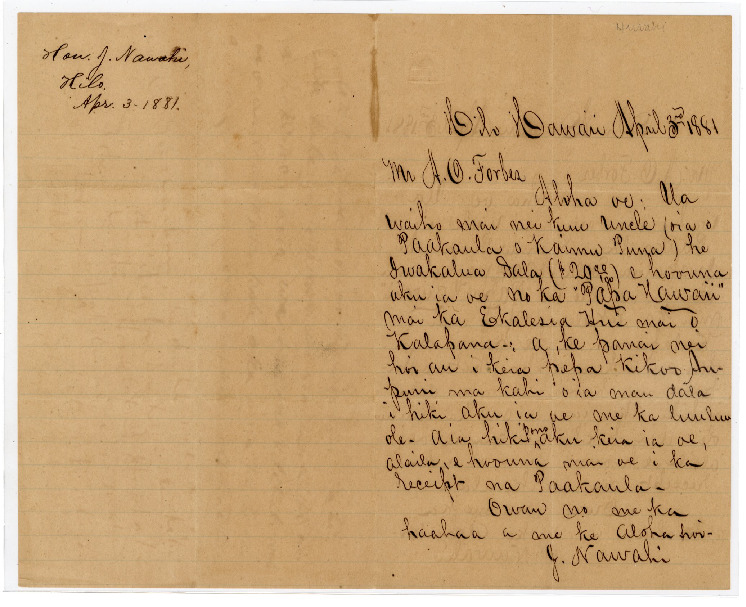 Hon. J. Nawahi,
Hilo.
Apr. 3-1881.
Hilo Hawaii April 3rd 1881
Mr A. O. Forbes
Aloha oe: Ua
waiho mai nei kuu Uncle (oia o
Paakaula o Kaimu Puna) he
Iwakalua Dala ($20 00/100) e hoouna
aku ia oe no ka "Papa Hawaii"
mai ka Ekalesia Hui mai o
Kalapana-; a, ke panai nei
hoi au i keia pepa kikoo
puni ma kahi o ia mau dala
i hiki aku ia oe me ka luuluu
ole- Aia hiki ono aku keia ia oe,
alaila, e hoouna mai oe i ka
receipt na Paakaula-
Owau no me ka
haahaa a me ke Aloha hoi-
J. Nawahi